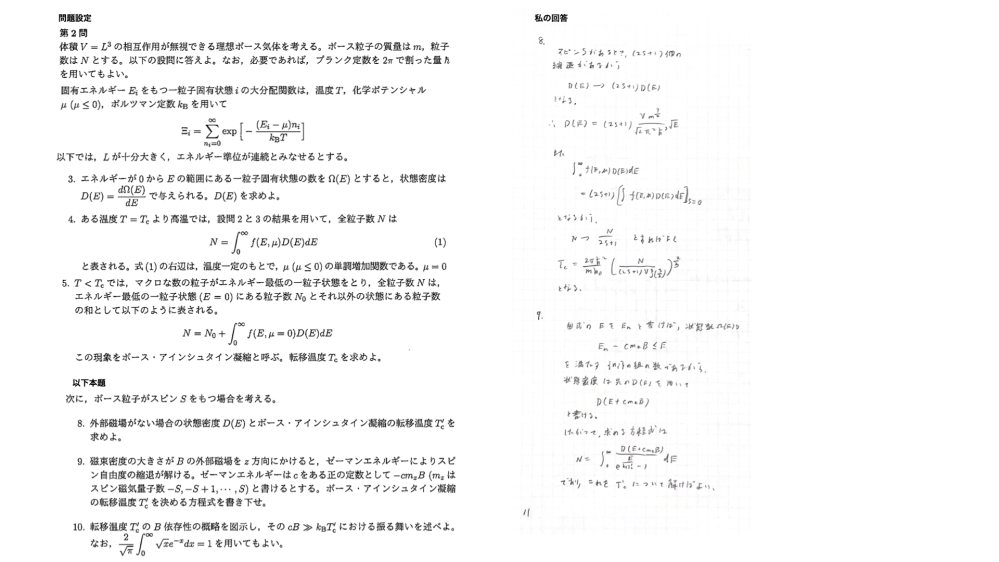 問題設定
第2問
体積 V = L³ の相互作用が無視できる理想ボース気体を考える。ボース粒子の質量は m，粒子
数は N とする。以下の設問に答えよ。なお，必要であれば，プランク定数を 2π で割った量 ħ
を用いてもよい。
固有エネルギー Eᵢ をもつ一粒子固有状態 i の大分配関数は，温度 T，化学ポテンシャル
μ (μ ≤ 0)，ボルツマン定数 k_B を用いて
Ξᵢ = Σ_{nᵢ=0}^{∞} exp [ − (Eᵢ − μ)nᵢ / k_BT ]
以下では，L が十分大きく，エネルギー準位が連続とみなせるとする。
3. エネルギーが 0 から E の範囲にある一粒子固有状態の数を Ω(E) とすると，状態密度は
D(E) = dΩ(E)/dE で与えられる。D(E) を求めよ。
4. ある温度 T = T_c より高温では，設問 2 と 3 の結果を用いて，全粒子数 N は
N = ∫₀^∞ f(E, μ)D(E)dE (1)
と表される。式 (1) の右辺は，温度一定のもとで，μ (μ ≤ 0) の単調増加関数である。μ = 0
5. T < T_c では，マクロな数の粒子がエネルギー最低の一粒子状態をとり，全粒子数 N は，
エネルギー最低の一粒子状態 (E = 0) にある粒子数 N₀ とそれ以外の状態にある粒子数
の和として以下のように表される。
N = N₀ + ∫₀^∞ f(E, μ = 0)D(E)dE
この現象をボース・アインシュタイン凝縮と呼ぶ。転移温度 T_c を求めよ。
以下本題
次に，ボース粒子がスピン S をもつ場合を考える。
8. 外部磁場がない場合の状態密度 D(E) とボース・アインシュタイン凝縮の転移温度 T_c′ を
求めよ。
9. 磁束密度の大きさが B の外部磁場を z 方向にかけると，ゼーマンエネルギーによりスピ
ン自由度の縮退が解ける。ゼーマンエネルギーは c をある正の定数として −cm_zB (m_z は
スピン磁気量子数 −S, −S + 1, ⋯ , S) と書けるとする。ボース・アインシュタイン凝縮
の転移温度 T_c′ を決める方程式を書き下せ。
10. 転移温度 T_c′ の B 依存性の概略を図示し，その cB ≫ k_BT_c′ における振る舞いを述べよ。
なお，2/√π ∫₀^∞ √x e^{−x}dx = 1 を用いてもよい。
私の回答
8.
スピン S があるとき，(2S+1) 個の
縮退があるから
D(E) → (2S+1) D(E)
となる。
∴ D(E) = (2S+1) V m^{3/2} / √2 π² ħ³ √E
また，
∫₀^∞ f(E, μ) D(E) dE
= (2S+1) [ ∫ f(E, μ) D(E) dE ]_{S=0}
となるから，
N → N / 2S+1 とすればよく
T_c = 2πħ² / mk_B ( N / (2S+1) V ζ(3/2) )^{2/3}
となる。
9.
の E を Eₙ と書けば，状態数 Ω(E) は
Eₙ − cm_zB ≤ E
を満たす の組の数であるから，
状態密度は先の D(E) を用いて
D(E + cm_zB)
と書ける。
したがって，求める方程式は
N = ∫₀^∞ D(E + cm_zB) / e^{E/k_BT_c′} − 1 dE
であり，これを T_c′ について解けばよい。